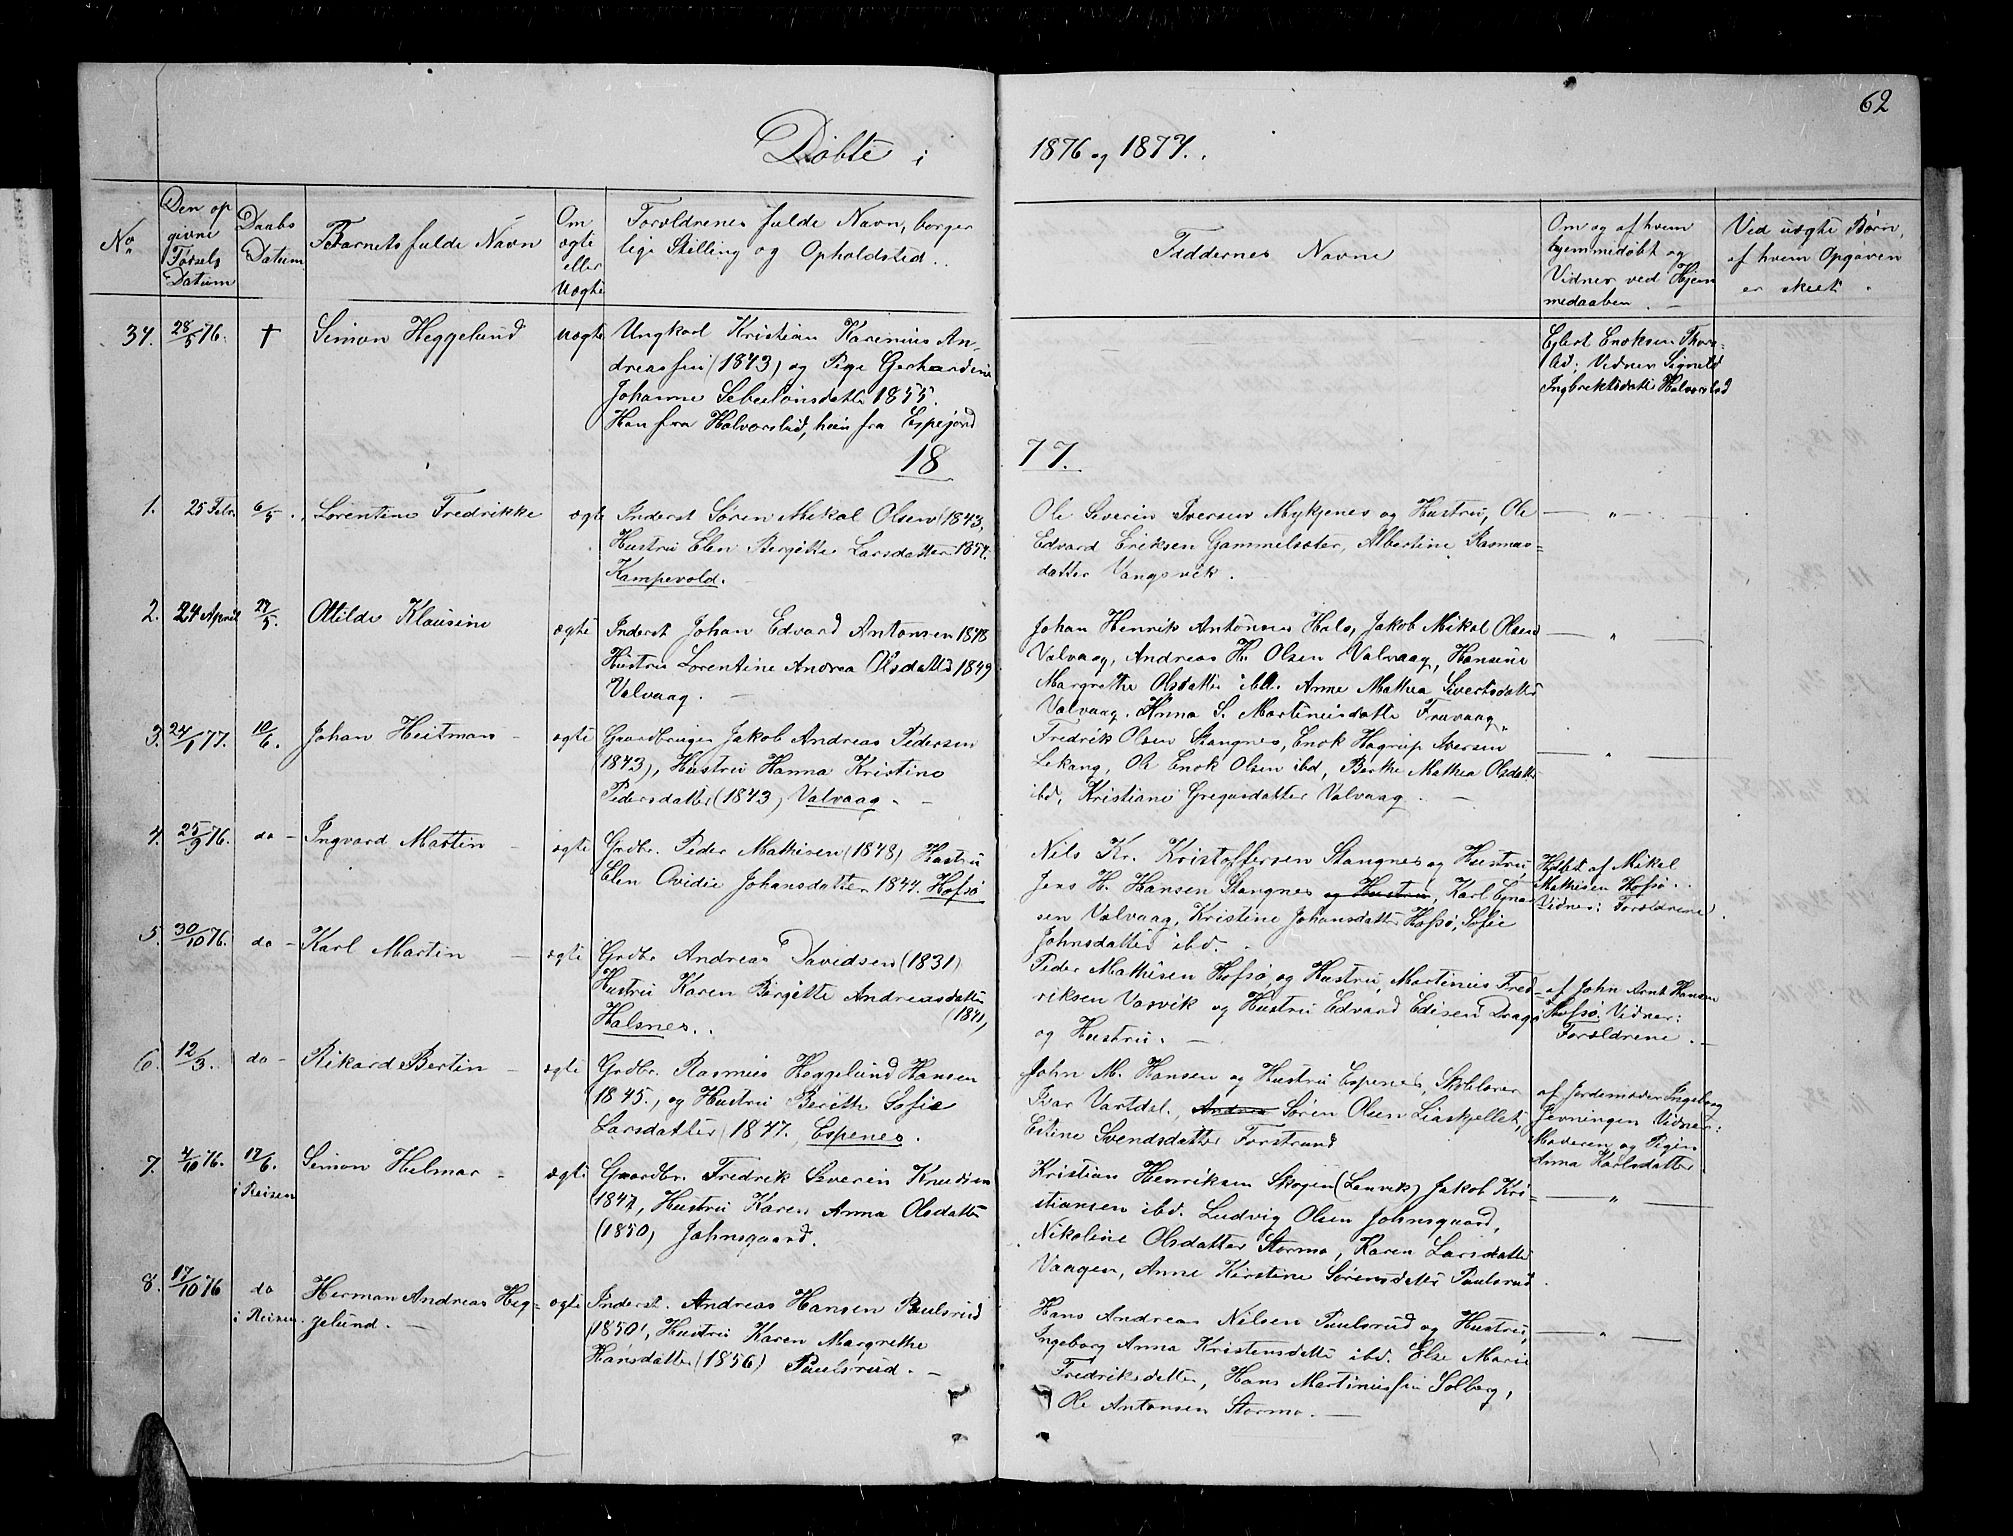 62
Döbte i 1876 og 1877.
No
Den op
givne
Fødsels
Datum
Daabs
Datum
Barnets fulde Navn
Om
ægte
eller
uægte
Forældrenes fulde Navn, borger
lige Stilling og Opholdsted.
Faddernes Navne
Om og af hvem
hjemmedøbt og
Vidner ved Hjem
medaaben.
Ved uægte Børn,
af hvem Opgaven
er skeet.
34. 28/5 76. † Simon Heggelund uægte Ungkarl Kristian Karenius An-
dreassen (1843) og Pige Gerhardine
Johanne Sebulonsdatt 1855.
Han fra Halvorslid, hun fra Espejord
Eglert Enoksen
Vidner Signeld
Ingbriktsdatt Halvorslid
1877.
1. 25 Febr. 6/5. Lorentine Fredrikke ægte Inderst Søren Mikal Olsen (1843,
Hustru Elen Bergitte Larsdatter 1854.
Kampevold.
Ole Severin Iversen Mykjenes og Hustru, Ole
Edvard Eriksen Gammelsæter, Albertine Rasmus=
datter Vangsvik.
— " —
2. 24 April 27/5. Otilde Klausine ægte Inderst Johan Edvard Antonsen 1848
Hustru Lorentine Andrea Olsdatter 1849
Valvaag.
Johan Henrik Antonsen Hals, Jakob Mikal Olsen
Valvaag, Andreas H. Olsen Valvaag, Hansine
Margrethe Olsdatter ibd. Anne Mathea Sivertsdatter
Valvaag. Anna S. Martinusdatte Fruvaag.
— " —
3. 24/1 77. 10/6. Johan Heitman ægte Gaardbruger Jakob Andreas Pedersen
(1843), Hustru Hanna Kristine
Pedersdatter (1843) Valvaag.
Fredrik Olsen Stangnes, Enok Hagrup Iversen
Lekang, Ole Enok Olsen ibd, Berthe Mathea Olsdatt
ibd, Kristiane Gregusdatter Valvaag.
— " —
4. 25/9 76. do Ingvard Martin ægte Grdbr. Peder Mathisen (1848) Hustru
Elen Ovidie Johansdatter 1844. Hofsø
Nils Kr. Kristoffersen Stangnes og Hustru,
Jens H. Hansen Stangnes og Hustru, Karl Ejnar
sen Valvaag, Kristine Johansdatter Hofsø, Sofie
Johnsdatter ibd.
Holdet af Mikal
Mathisen Hofsø.
Vidner: Forældrene
5. 30/10 76. do Karl Martin ægte Grdbr Andreas Davidsen (1831)
Hustru Karen Bergitte Andreasdatter
(1841)
Halsnes.
Peder Mathisen Hofsø, og Hustru, Martinus Fred=
riksen Vasvik og Hustru Edvard Edisen Drage
og Hustru.
af John Arnt Hansen
Hofsø. Vidner:
Forældrene.
6. 12/3. do Rikard Bertin ægte Grdbr. Rasmus Heggelund Hansen
1845., og Hustru Berith Sofie
Larsdatter (1847. Espenes.
John M. Hansen og Hustru Espenes, Skolelærer
Ivar Vartdal., Andrea Søren Olsen Liaskjellet,
Estine Svendsdatter Forstrand
af Jordemoder Ingeborg
Jevningen Vidner:
Moderen og Pigen
Anna Karlsdatter
7. 4/10 76. 17/6. i Reisen Simon Helmar ægte Gaardbr. Fredrik Severin Knudsen
1847, Hustru Karen Anna Olsdatter
(1850) Johnsgaard.
Kristian Henriksen Skogen (Lenvik) Jakob Kri=
stiansen ibd. Ludvig Olsen Johnsgaard,
Nikoline Olsdatter Stormo, Karen Larsdatter
Vaagen, Anne Kirstine Sørensdatter Paulsrud.
— " —
8. 17/10 76 do i Reisen. Herman Andreas Heg=
gelund. ægte Inderst. Andreas Hansen Paulsrud
1850', Hustru Karen Margrethe
Hansdatter (1856) Paulsrud.
Hans Andreas Nilsen Paulsrud og Hustru,
Ingeborg Anna Kristensdatte ibd. Else Marie
Fredriksdatter, Hans Martinussen Solberg,
Ole Antonsen Stormo.
— " —